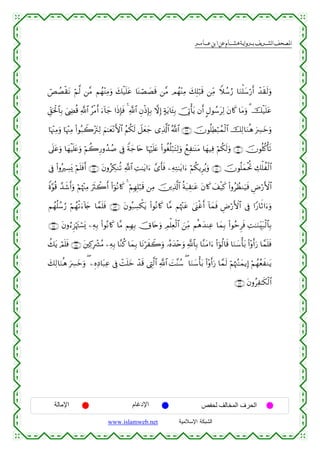 المصحف الشريف برواية هشام عن ابن عامر
وَلَقَدْ أَرْسَلْنَا رُسُلًا مِّن قَبْلِكَ مِنْهُم مَّن قَصَصْنَا عَلَيْكَ وَمِنْهُم مَّن لَّمْ نَقْصُصْ
عَلَيْكَ ۗ وَمَا كَانَ لِرَسُولٍ أَن يَأْتِيَ بِـَٔايَةٍ إِلَّا بِإِذْنِ ٱللَّهِ ۚ فَإِذَا جَآءَ أَمْرُ ٱللَّهِ قُضِيَ بِٱلْحَقِّ
وَخَسِرَ هُنَالِكَ ٱلْمُبْطِلُونَ ٱللَّهُ ٱلَّذِى جَعَلَ لَكُمُ ٱلْأَنْعَٰمَ لِتَرْكَبُوا۟ مِنْهَا وَمِنْهَا
تَأْكُلُونَ وَلَكُمْ فِيهَا مَنَٰفِعُ وَلِتَبْلُغُوا۟ عَلَيْهَا حَاجَةً فِى صُدُورِكُمْ وَعَلَيْهَا وَعَلَى
ٱلْفُلْكِ تُحْمَلُونَ وَيُرِيكُمْ ءَايَٰتِهِۦ فَأَىَّ ءَايَٰتِ ٱللَّهِ تُنكِرُونَ أَفَلَمْ يَسِيرُوا۟ فِى
ٱلْأَرْضِ فَيَنظُرُوا۟ كَيْفَ كَانَ عَٰقِبَةُ ٱلَّذِينَ مِن قَبْلِهِمْ ۚ كَانُوٓا۟ أَكْثَرَ مِنْهُمْ وَأَشَدَّ قُوَّةً
وَءَاثَارًا فِى ٱلْأَرْضِ فَمَآ أَغْنَىٰ عَنْهُم مَّا كَانُوا۟ يَكْسِبُونَ فَلَمَّا جَآءَتْهُمْ رُسُلُهُم
بِٱلْبَيِّنَٰتِ فَرِحُوا۟ بِمَا عِندَهُم مِّنَ ٱلْعِلْمِ وَحَاقَ بِهِم مَّا كَانُوا۟ بِهِۦ يَسْتَهْزِءُونَ
فَلَمَّا رَأَوْا۟ بَأْسَنَا قَالُوٓا۟ ءَامَنَّا بِٱللَّهِ وَحْدَهُۥ وَكَفَرْنَا بِمَا كُنَّا بِهِۦ مُشْرِكِينَ فَلَمْ يَكُ
يَنفَعُهُمْ إِيمَٰنُهُمْ لَمَّا رَأَوْا۟ بَأْسَنَا ۖ سُنَّتَ ٱللَّهِ ٱلَّتِى قَدْ خَلَتْ فِى عِبَادِهِۦ ۖ وَخَسِرَ هُنَالِكَ
ٱلْكَٰفِرُونَ
الحرف المخالف لحفص الإدغام الإمالة
الشبكة الإسلامية www.islamweb.net